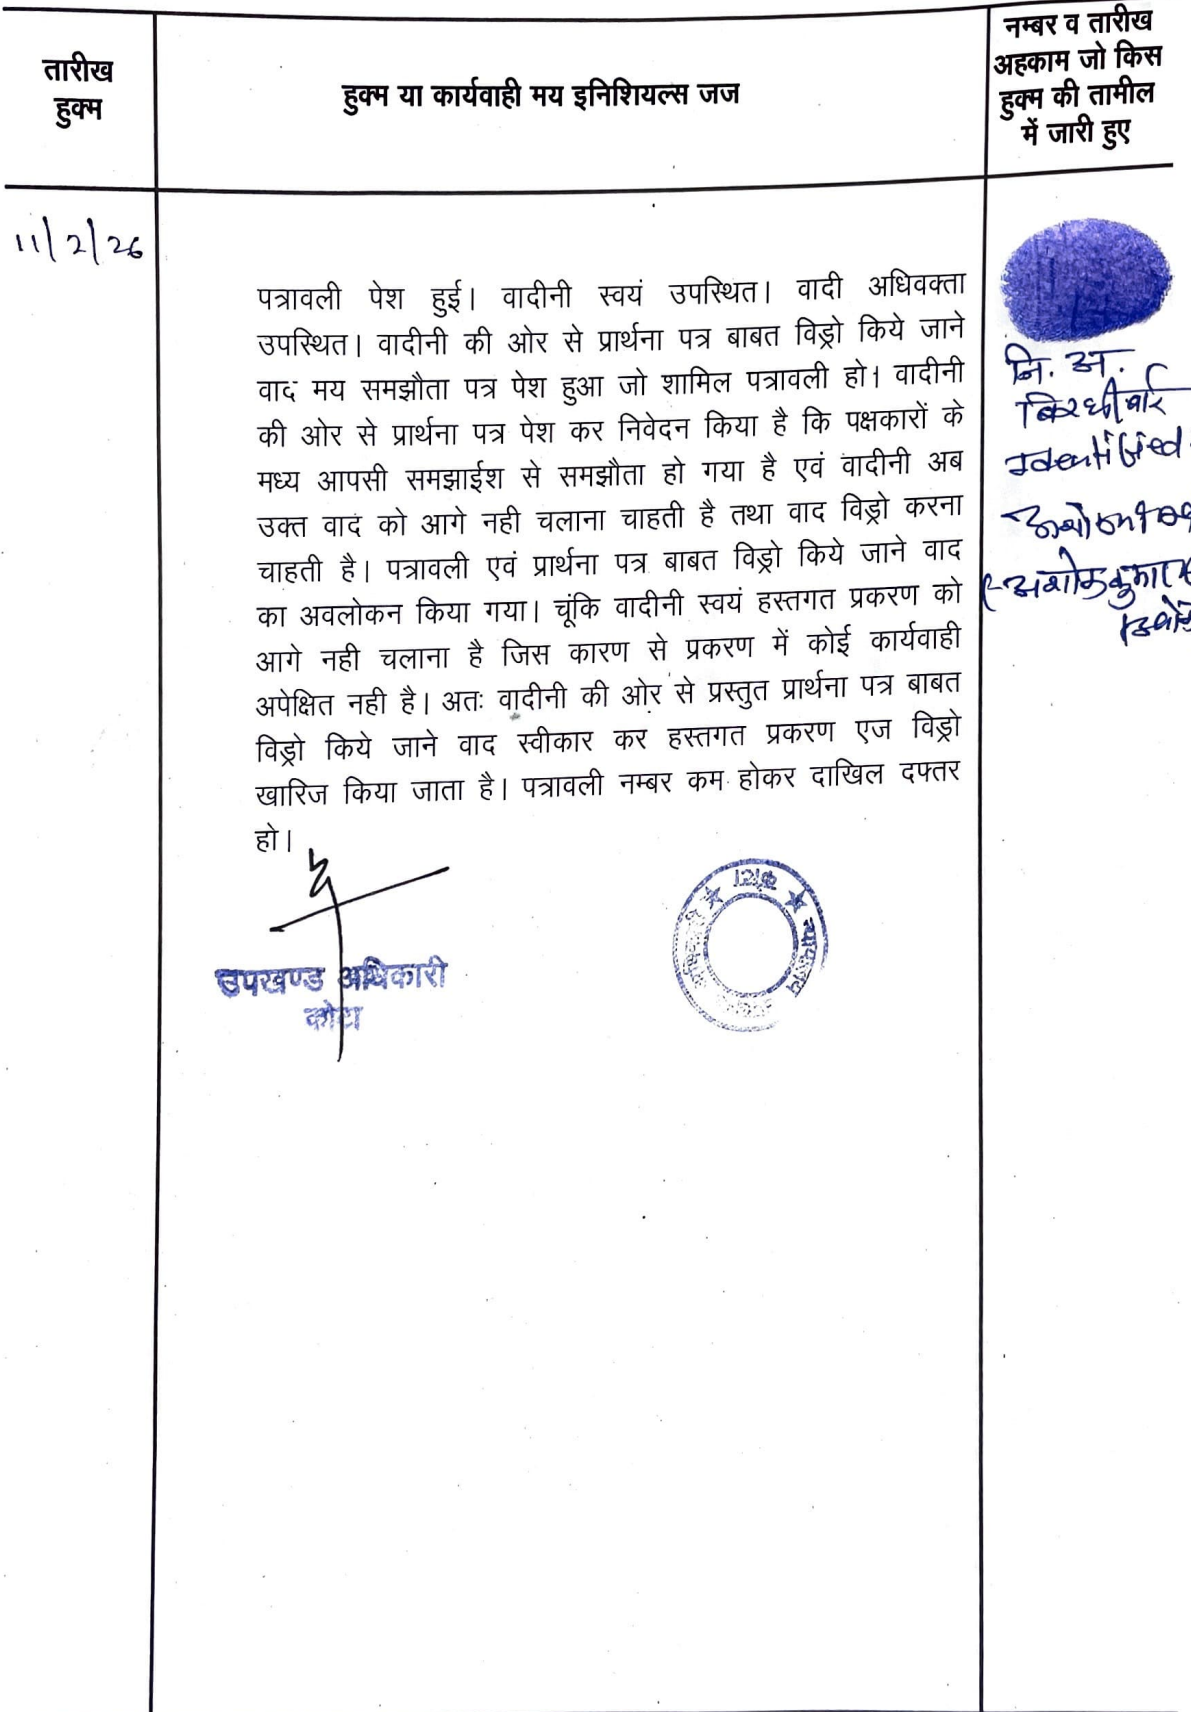 तारीख
हुक्म
हुक्म या कार्यवाही मय इनिशियल्स जज
नम्बर व तारीख
अहकाम जो किस
हुक्म की तामील
में जारी हुए
11/2/26
पत्रावली पेश हुई। वादीनी स्वयं उपस्थित। वादी अधिवक्ता
उपस्थित। वादीनी की ओर से प्रार्थना पत्र बाबत विड्रो किये जाने
वाद मय समझौता पत्र पेश हुआ जो शामिल पत्रावली हो। वादीनी
की ओर से प्रार्थना पत्र पेश कर निवेदन किया है कि पक्षकारों के
मध्य आपसी समझाईश से समझौता हो गया है एवं वादीनी अब
उक्त वाद को आगे नही चलाना चाहती है तथा वाद विड्रो करना
चाहती है। पत्रावली एवं प्रार्थना पत्र बाबत विड्रो किये जाने वाद
का अवलोकन किया गया। चूंकि वादीनी स्वयं हस्तगत प्रकरण को
आगे नही चलाना है जिस कारण से प्रकरण में कोई कार्यवाही
अपेक्षित नही है। अतः वादीनी की ओर से प्रस्तुत प्रार्थना पत्र बाबत
विड्रो किये जाने वाद स्वीकार कर हस्तगत प्रकरण एज विड्रो
खारिज किया जाता है। पत्रावली नम्बर कम होकर दाखिल दफ्तर
हो।
उपखण्ड अधिकारी
कोटा
न्यायालय
कोटा
नि. अ.
Identified
अशोक कुमार